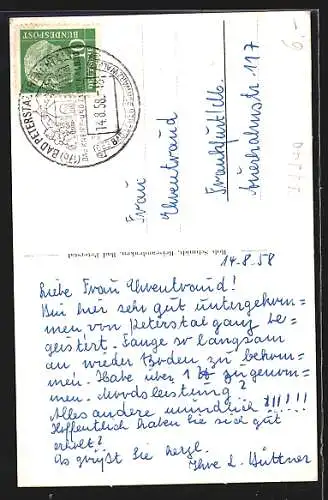 DEUTSCHE BUNDESPOST
10
(17b) BAD PETERSTAL
14.8.58
6,-
Frau
Ehrentraud
Frankfurt/M.
117
Rob. Schmidt, Bad Peterstal
14.8.58
Liebe Frau Ehrentraud!
Bin hier sehr gut untergekom=
men von Peterstal ganz be=
geistert. Fange so langsam
an wieder Boden zu bekom=
men. Habe über 1 ℔ zugenom=
men. Mordsleistung?
Alles andere mündlich!!!!!!
Hoffentlich haben Sie sich gut
erholt?
Es grüßt Sie herzl.
Ihre L. Hüttner